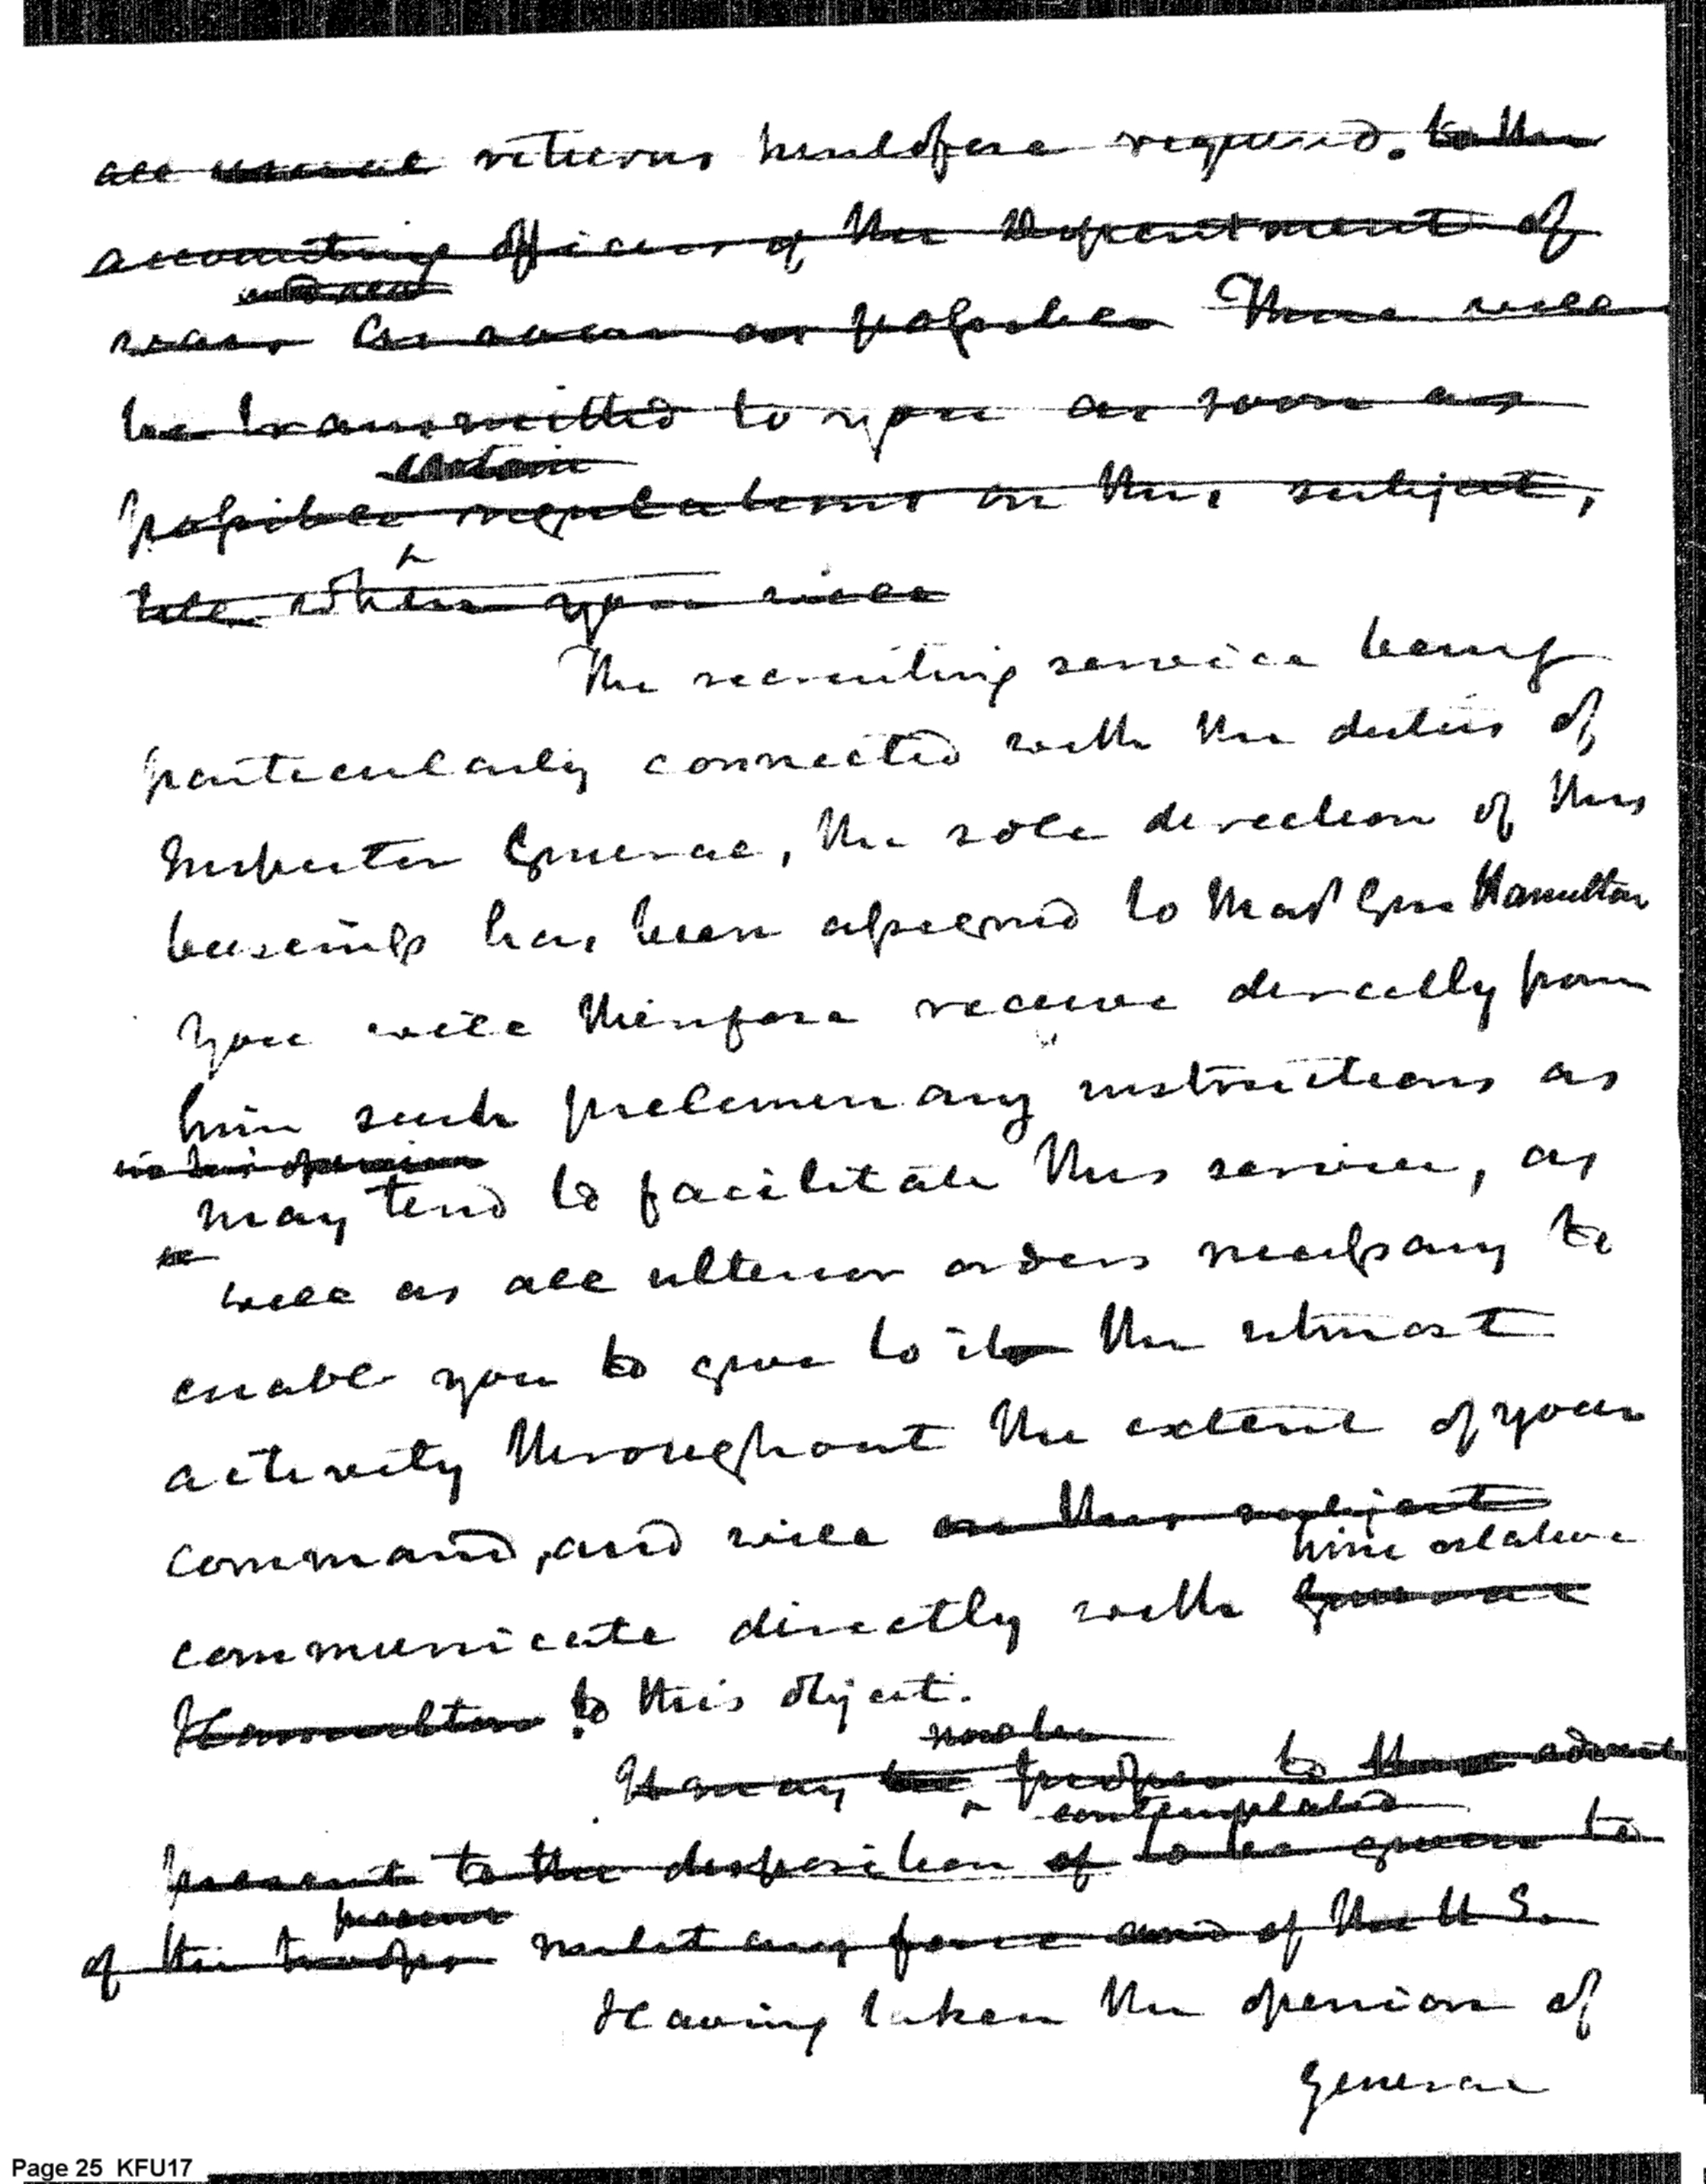 all usual returns heretofore required. to the
accounting officers of the Department of
war, as soon as possible These will
be transmitted to you as soon as
certain
possible regulations on this subject,
till when you will
The recruiting service being
particularly connected with the duties of
Inspector General, the sole direction of this
business has been assigned to Maj Gen Hamilton
You will therefore receive directly from
him such preliminary instructions as
in his opinion
may tend to facilitate this service, as
well as all ulterior orders necessary to
enable you to give to it the utmost
activity throughout the extent of your
command, and will on this subject
him relative
communicate directly with General
Hamilton to this object.
now be
It may be proper to advert
contemplated
present to the disposition of to be given to
present
of the troops military force and of the U S.
Having taken the opinion of
General
Page 25 KFU17